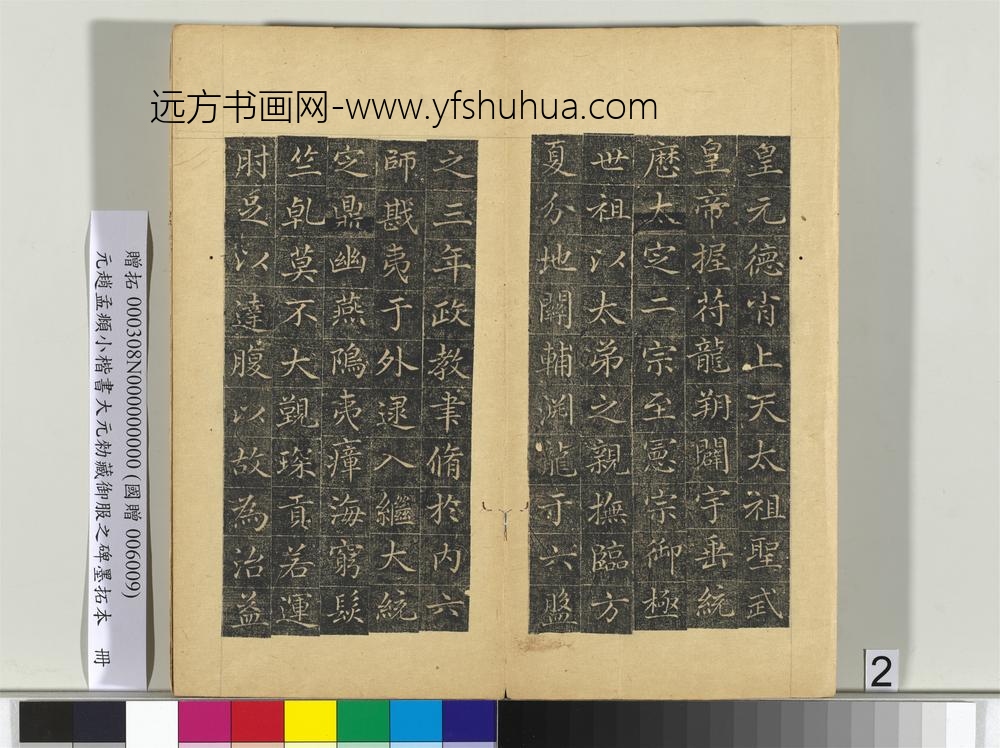 远方书画网-www.yfshuhua.com
皇元德肖上天太祖聖武
皇帝握符龍朔闢宇垂統
歷太定二宗至憲宗御極
世祖以太弟之親撫臨方
夏分地關輔渊龍于六盤
之三年政教聿脩於内六
師戡夷于外逮入繼大統
定鼎幽燕隝夷瘴海窮髮
竺乹莫不大覲琛貢若運
肘是以達腹以故為治益
贈拓 000308N000000000 (國贈 006009)
元趙孟頫小楷書大元勅藏御服之碑墨拓本 冊
2